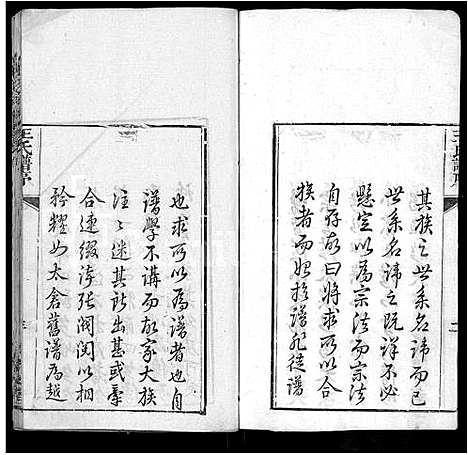 其族之世系名諱而已
世系名諱之既詳不必
懸定以為宗法而宗法
自存故曰將求以合
族者而始於譜非徒譜
也求所以為譜者也自
譜學不講而故家大族
注〻迷其所出甚或牽
合連綴誇張閥閱以相
矜耀如太倉舊譜為越
王氏譜序